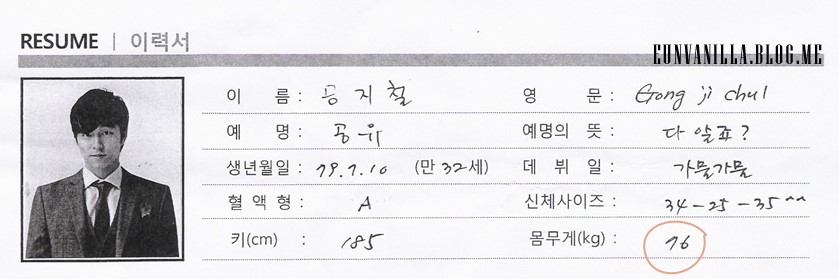 RESUME | 이력서
EUNVANILLA.BLOG.ME
이 름 : 공지철 영 문 : Gong ji chul
예 명 : 공유 예명의 뜻 : 다 알죠?
생년월일 : 79.7.10 (만 32세) 데 뷔 일 : 가물가물
혈 액 형 : A 신체사이즈 : 34-25-35^^
키(cm) : 185 몸무게(kg) : 76